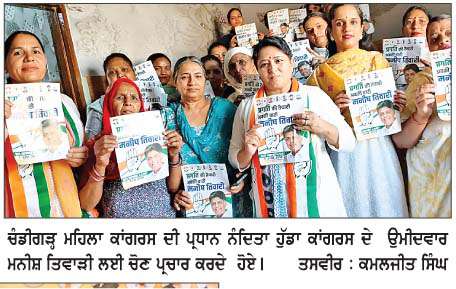 प्रगति की तैयारी
अबकी बारी
मनीष तिवारी
ਚੰਡੀਗੜ੍ਹ ਮਹਿਲਾ ਕਾਂਗਰਸ ਦੀ ਪ੍ਰਧਾਨ ਨੰਦਿਤਾ ਹੁੱਡਾ ਕਾਂਗਰਸ ਦੇ ਉਮੀਦਵਾਰ
ਮਨੀਸ਼ ਤਿਵਾੜੀ ਲਈ ਚੋਣ ਪ੍ਰਚਾਰ ਕਰਦੇ ਹੋਏ। ਤਸਵੀਰ : ਕਮਲਜੀਤ ਸਿੰਘ